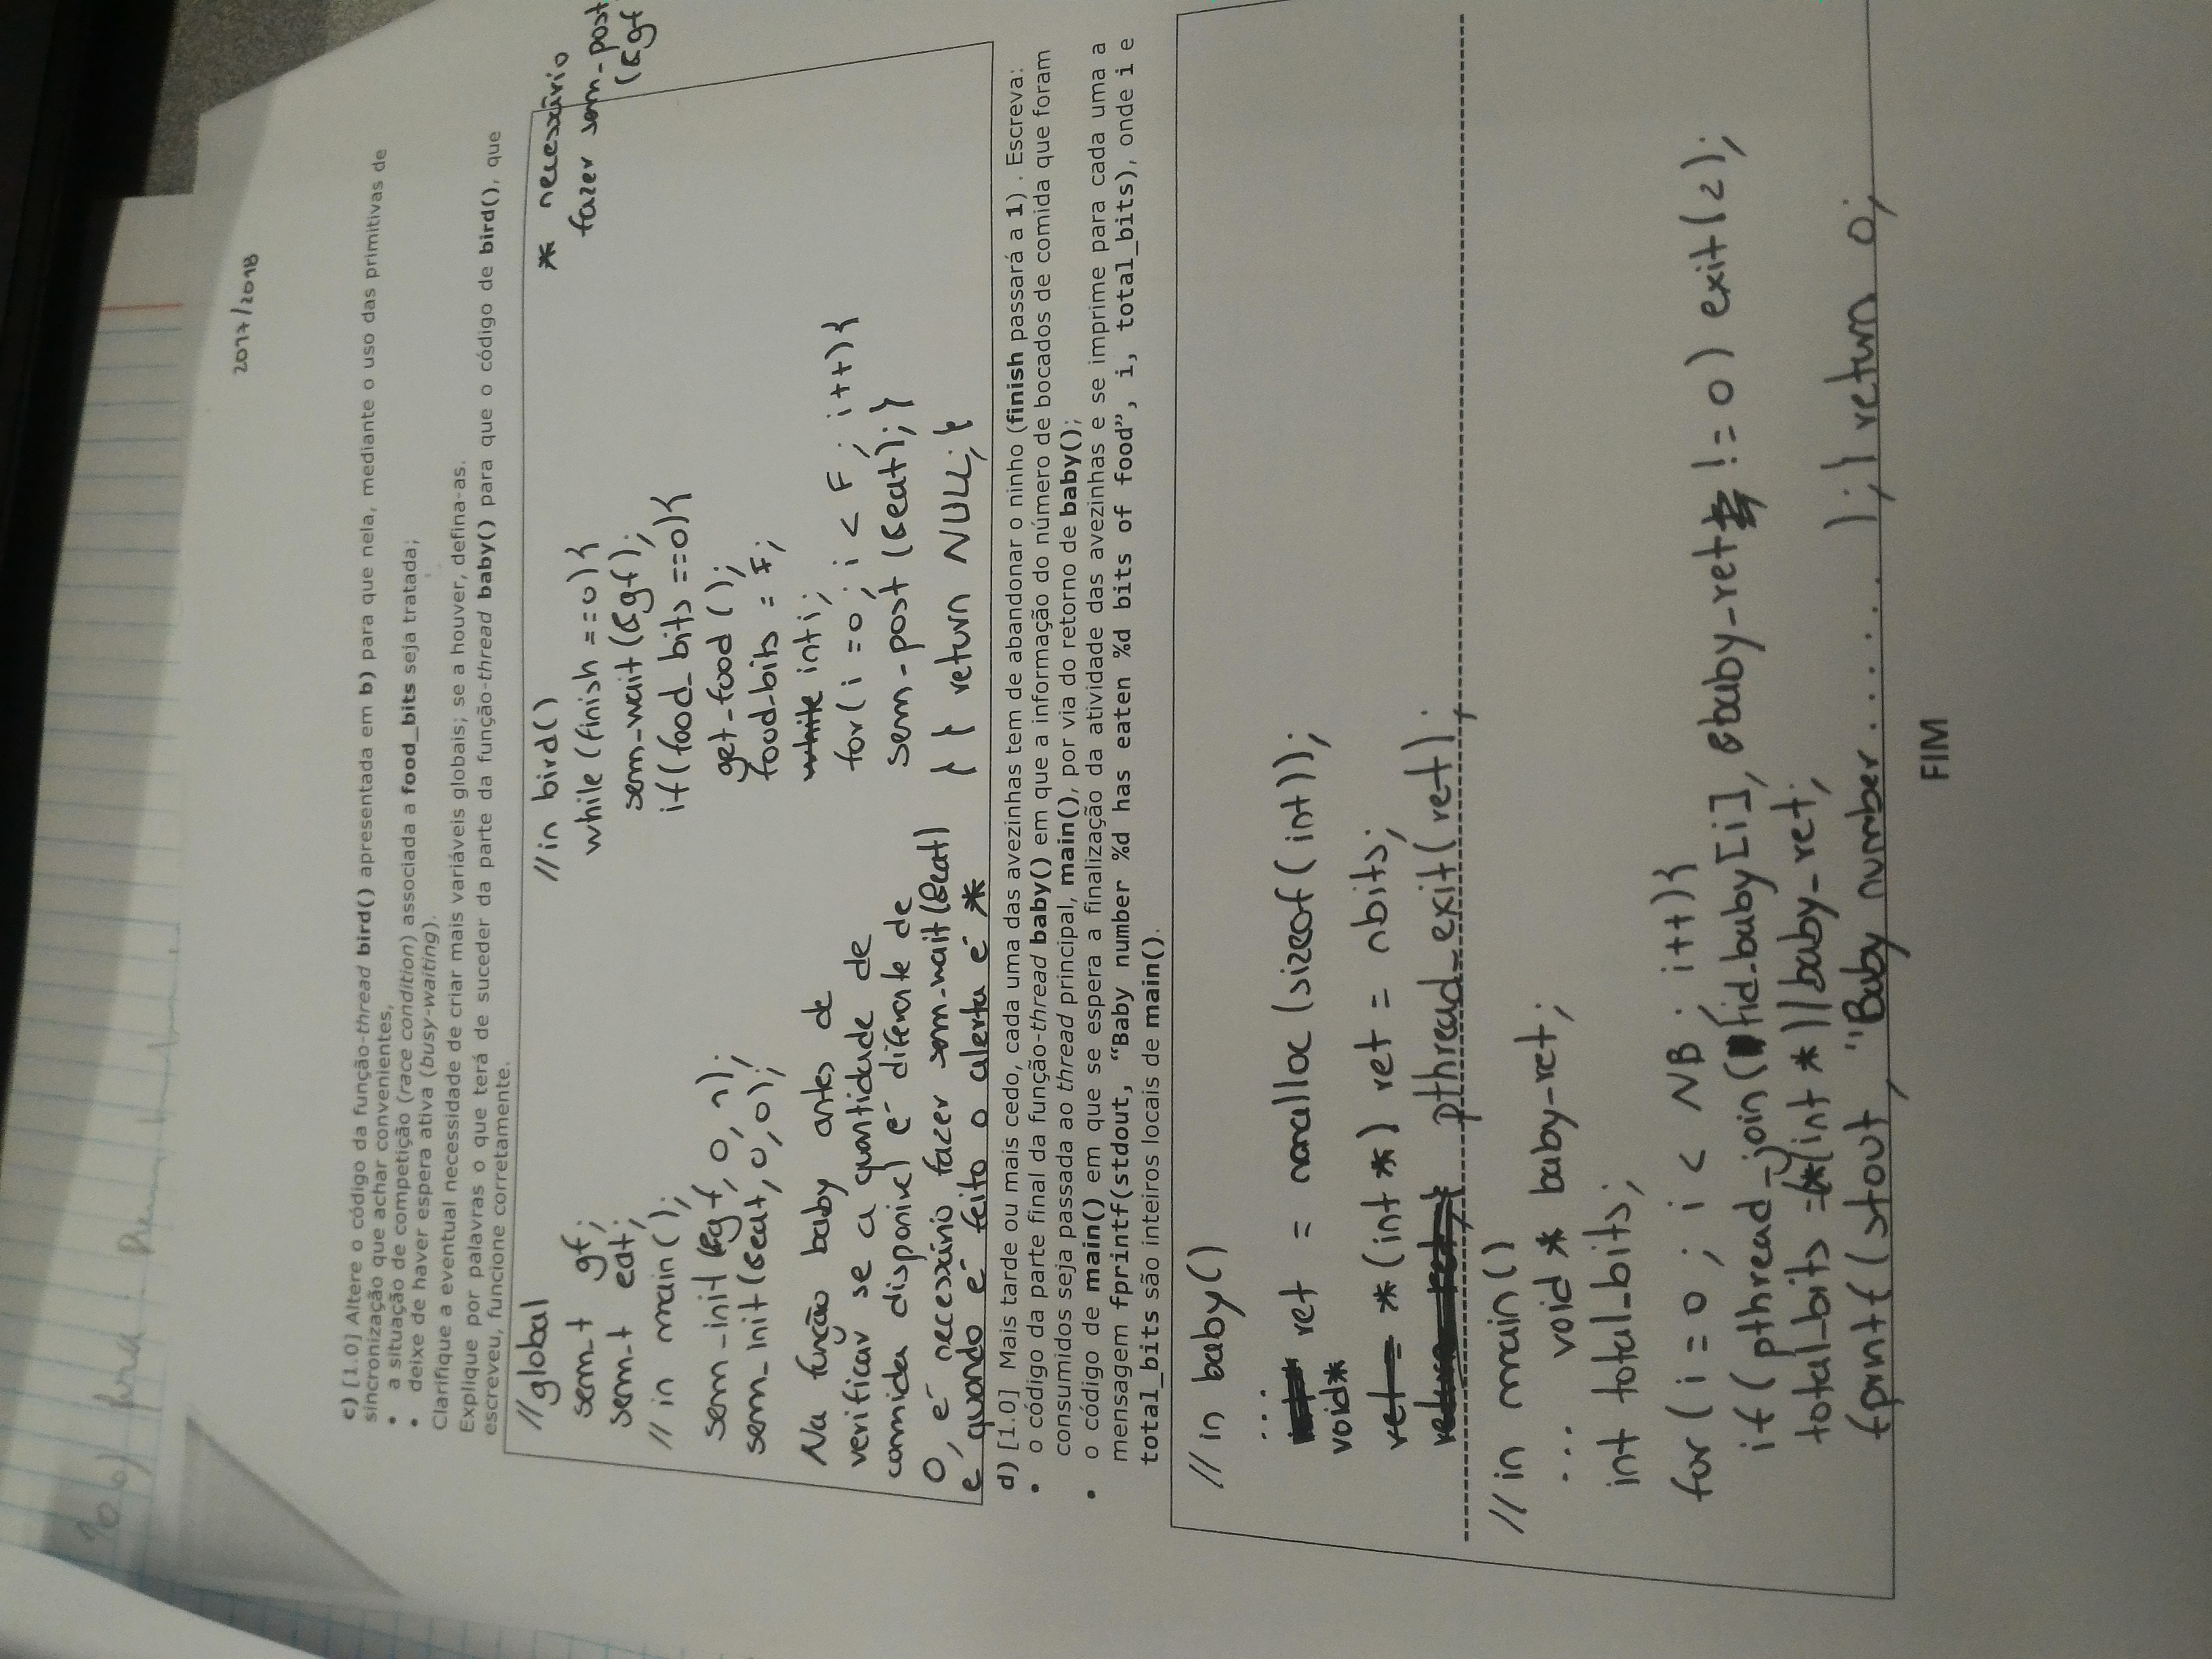 10 b)
2017/2018
c) [1.0] Altere o código da função-thread bird() apresentada em b) para que nela, mediante o uso das primitivas de
sincronização que achar convenientes,
• a situação de competição (race condition) associada a food_bits seja tratada;
• deixe de haver espera ativa (busy-waiting).
Clarifique a eventual necessidade de criar mais variáveis globais; se a houver, defina-as.
Explique por palavras o que terá de suceder da parte da função-thread baby() para que o código de bird(), que
escreveu, funcione corretamente.
//global
sem_t gf;
sem_t eat;
// in main();
sem_init(&gf, 0, 1);
sem_init(&eat, 0, 0);
Na função baby antes de
verificar se a quantidade de
comida disponivel é diferente de
0, é necessário fazer sem_wait(&eat)
e quando é feito o alerta é *
//in bird()
while (finish ==0){
sem_wait(&gf);
if(food_bits ==0){
get_food ();
food_bits = F;
while int i;
for(i =0; i < F; i++){
sem_post (&eat); }
} } return NULL; }
* necessário
fazer sem_post
(&gf
d) [1.0] Mais tarde ou mais cedo, cada uma das avezinhas tem de abandonar o ninho (finish passará a 1) . Escreva:
• o código da parte final da função-thread baby() em que a informação do número de bocados de comida que foram
consumidos seja passada ao thread principal, main(), por via do retorno de baby();
• o código de main() em que se espera a finalização da atividade das avezinhas e se imprime para cada uma a
mensagem fprintf(stdout, “Baby number %d has eaten %d bits of food”, i, total_bits), onde i e
total_bits são inteiros locais de main().
// in baby()
...
ret = malloc (sizeof(int));
void*
ret = *(int *) ret = nbits;
pthread_exit(ret);
// in main()
... void * baby_ret;
int total_bits;
for(i=0; i < NB; i++){
if(pthread_join(tid_baby[i], &baby_ret != 0) exit(2);
total_bits =*(int *)baby_ret;
fprintf(stout, "Baby number ...... );} return 0;
FIM